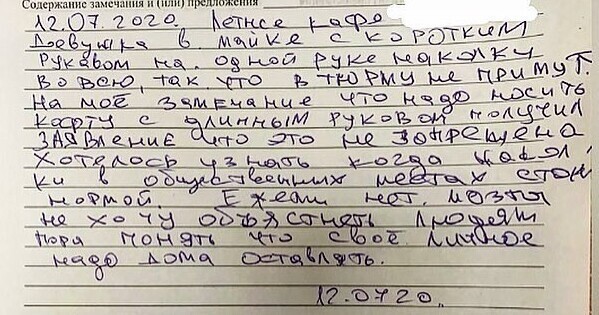 Содержание замечания и (или) предложения
12.07.2020. Летнее кафе
Девушка в майке с коротким
рукавом на одной руке наколки
вовсю, так что в тюрму не примут.
На моё замечание что надо носить
кафту с длинным руковом получил
заявление что это не запрещена
Хотелось узнать когда накол
ки в общественных местах стои
нормой. Ежели нет мозга
не хочу объястнеть людям
пора понять что своё личное
надо дома оставлять.
12.0720.